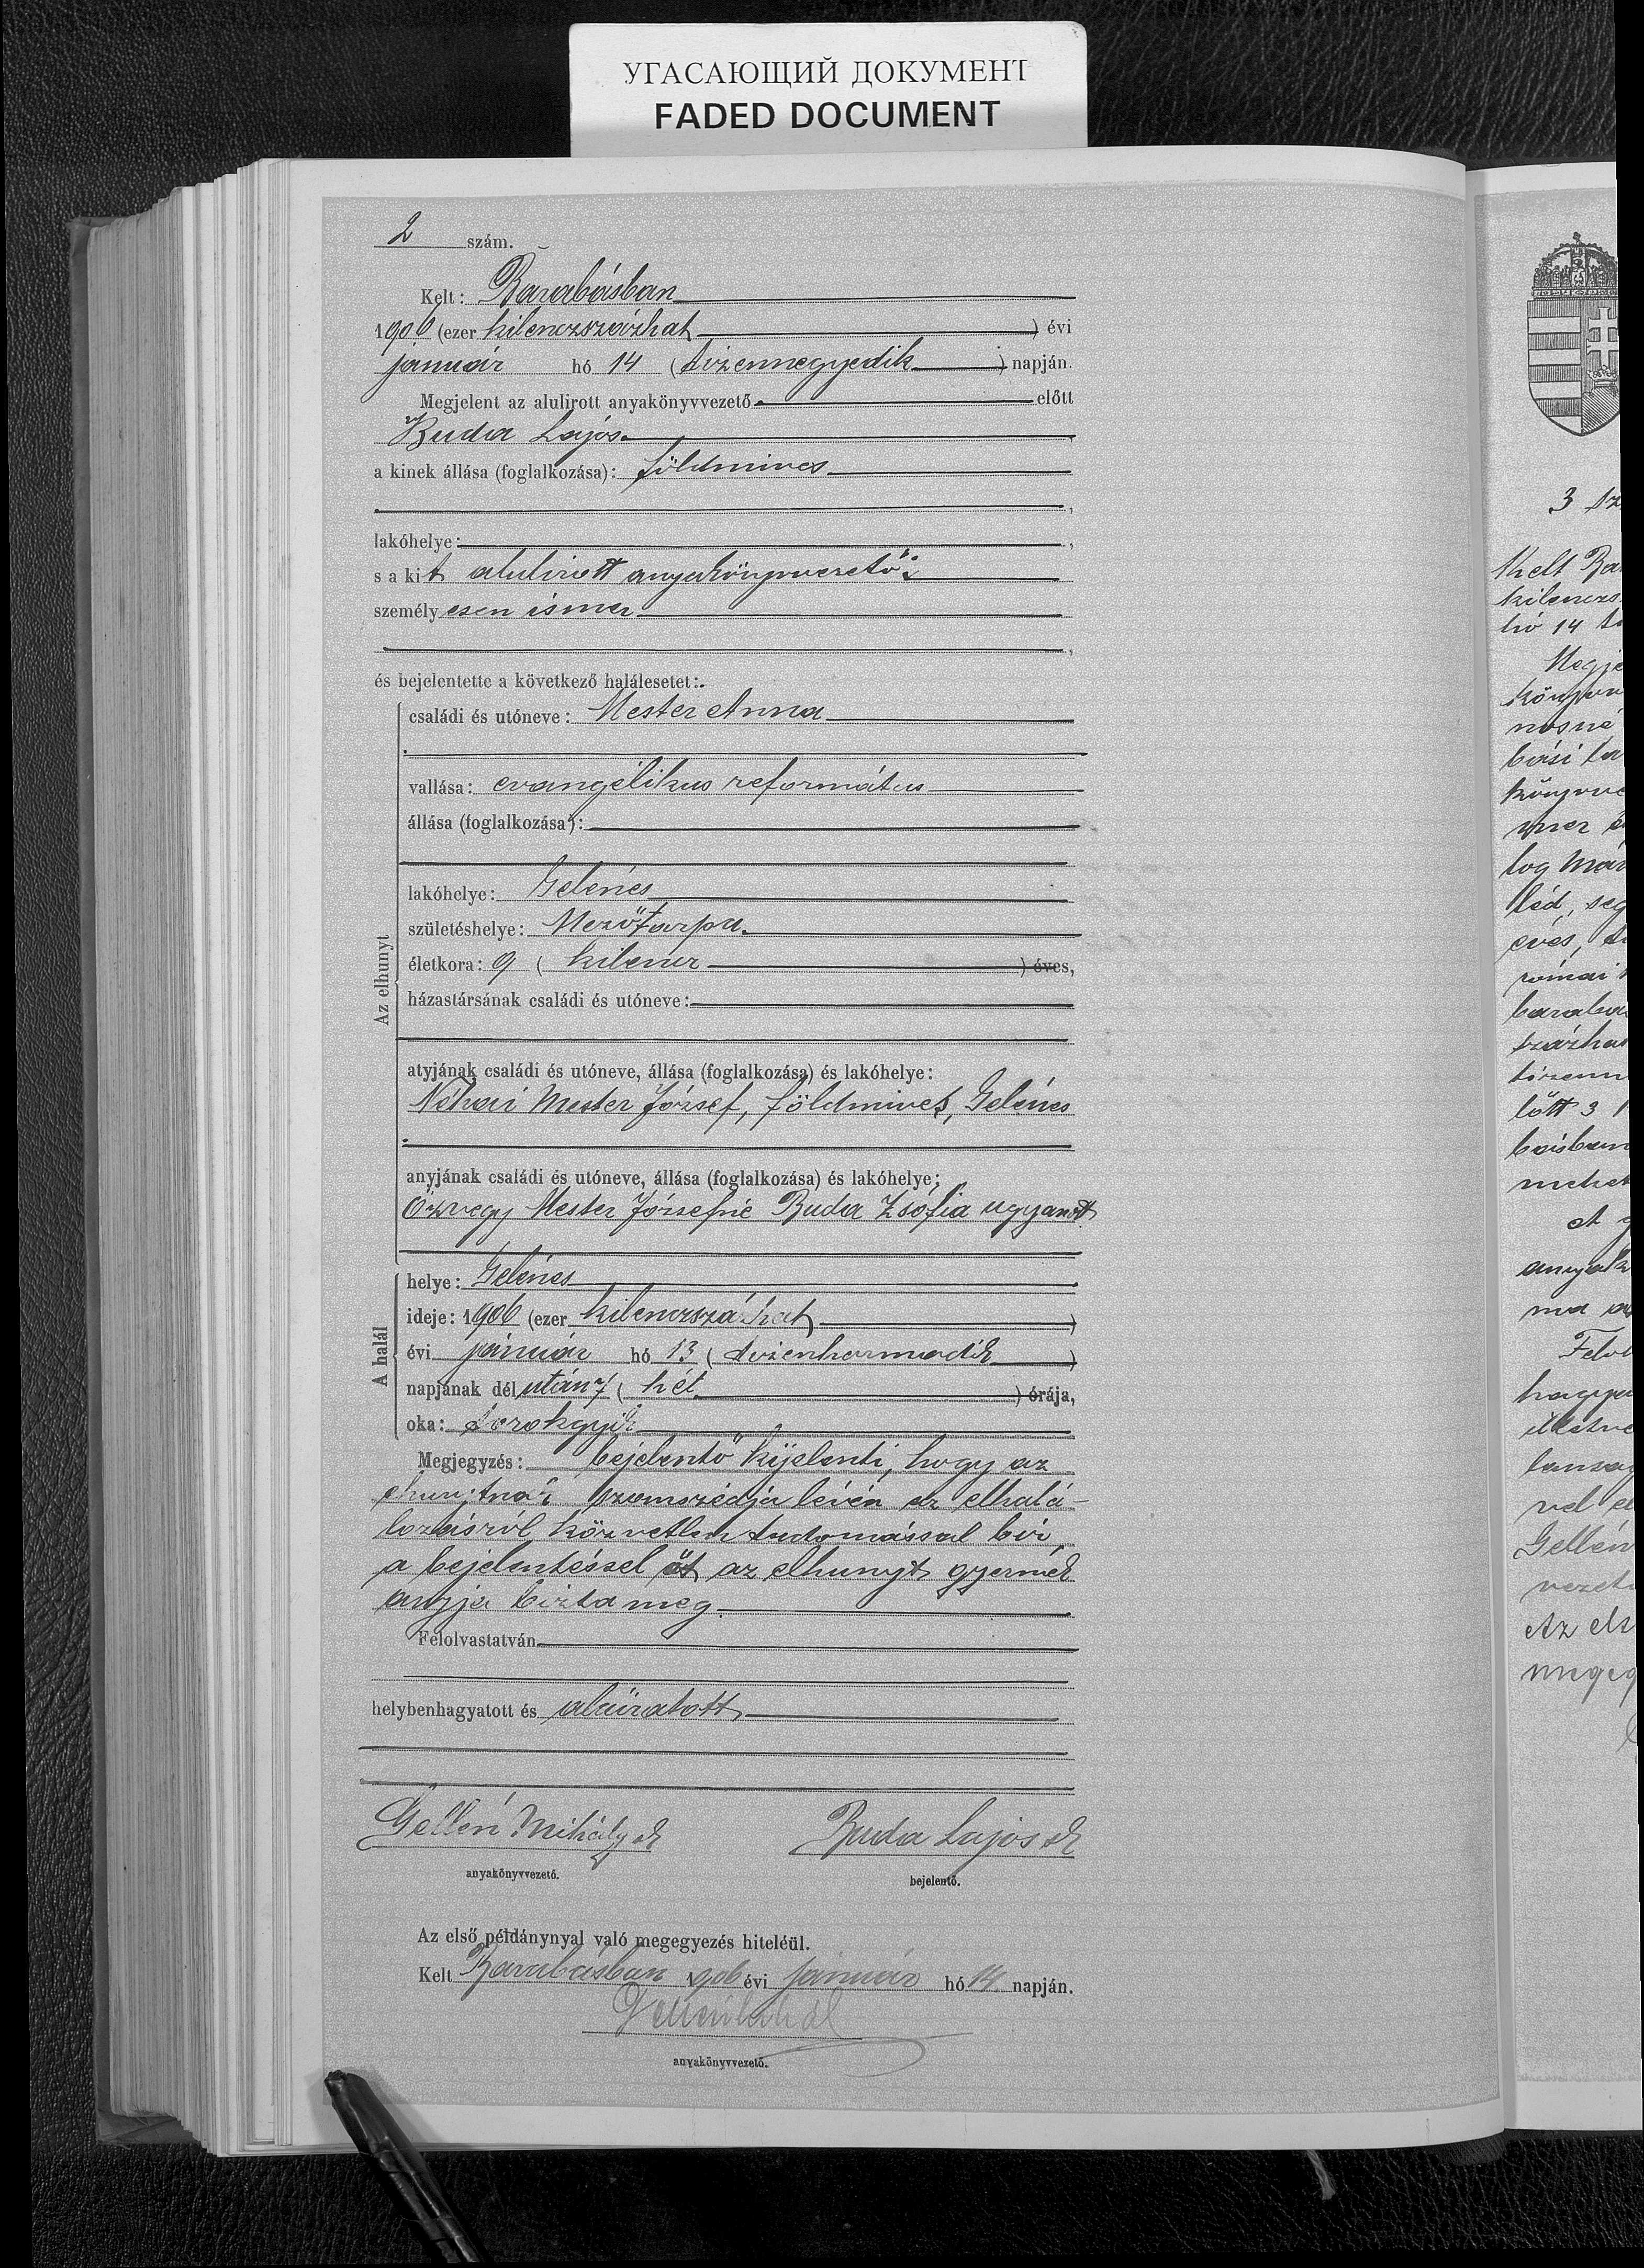 УГАСАЮЩИЙ ДОКУМЕНТ
FADED DOCUMENT
2 szám.
Kelt: Barabásban
1906 (ezer kilenczszázhat) évi
január hó 14 (tizennegyedik) napján.
Megjelent az alulirott anyakönyvvezető előtt
Buda Lajos
a kinek állása (foglalkozása): földmives
lakóhelye:
s a kit alulirott anyakönyvvezető
személyesen ismer
és bejelentette a következő halálesetet:
Az elhunyt
családi és utóneve: Mester Anna
vallása: evangélikus református
állása (foglalkozása):
lakóhelye: Gelénes
születéshelye: Mezőtarpa
életkora: 9 (kilencz) éves,
házastársának családi és utóneve:
atyjának családi és utóneve, állása (foglalkozása) és lakóhelye:
Néhai Mester József, földmives, Gelénes
anyjának családi és utóneve, állása (foglalkozása) és lakóhelye:
Özvegy Mester Józsefné Buda Zsófia ugyanott
A halál
helye: Gelénes
ideje: 1906 (ezer kilenczszázhat)
évi január hó 13 (tizenharmadik)
napjának dél után 7 (hét) órája,
oka: torokgyík
Megjegyzés: bejelentő kijelenti, hogy az
elhunytnak szomszédja lévén az elhalá-
lozásról közvetlen tudomással bír
a bejelentéssel őt az elhunyt gyermek
anyja bizta meg.
Felolvastatván
helybenhagyatott és aláiratott
Gellén Mihály sk Buda Lajos sk
anyakönyvvezető. bejelentő.
Az első példánynyal való megegyezés hiteléül.
Kelt Barabásban 1906 évi január hó 14 napján.
Gellén Mihál
anyakönyvvezető.
3
Kelt
kilenczs
hó 14
nosné
bási la
tog
léd,
éves,
római
baraba
százhat
tizenn
lőtt 3
básban
anyak
ma
Felol
hagya
illetve
Gellén
vezető
Az els
megeg